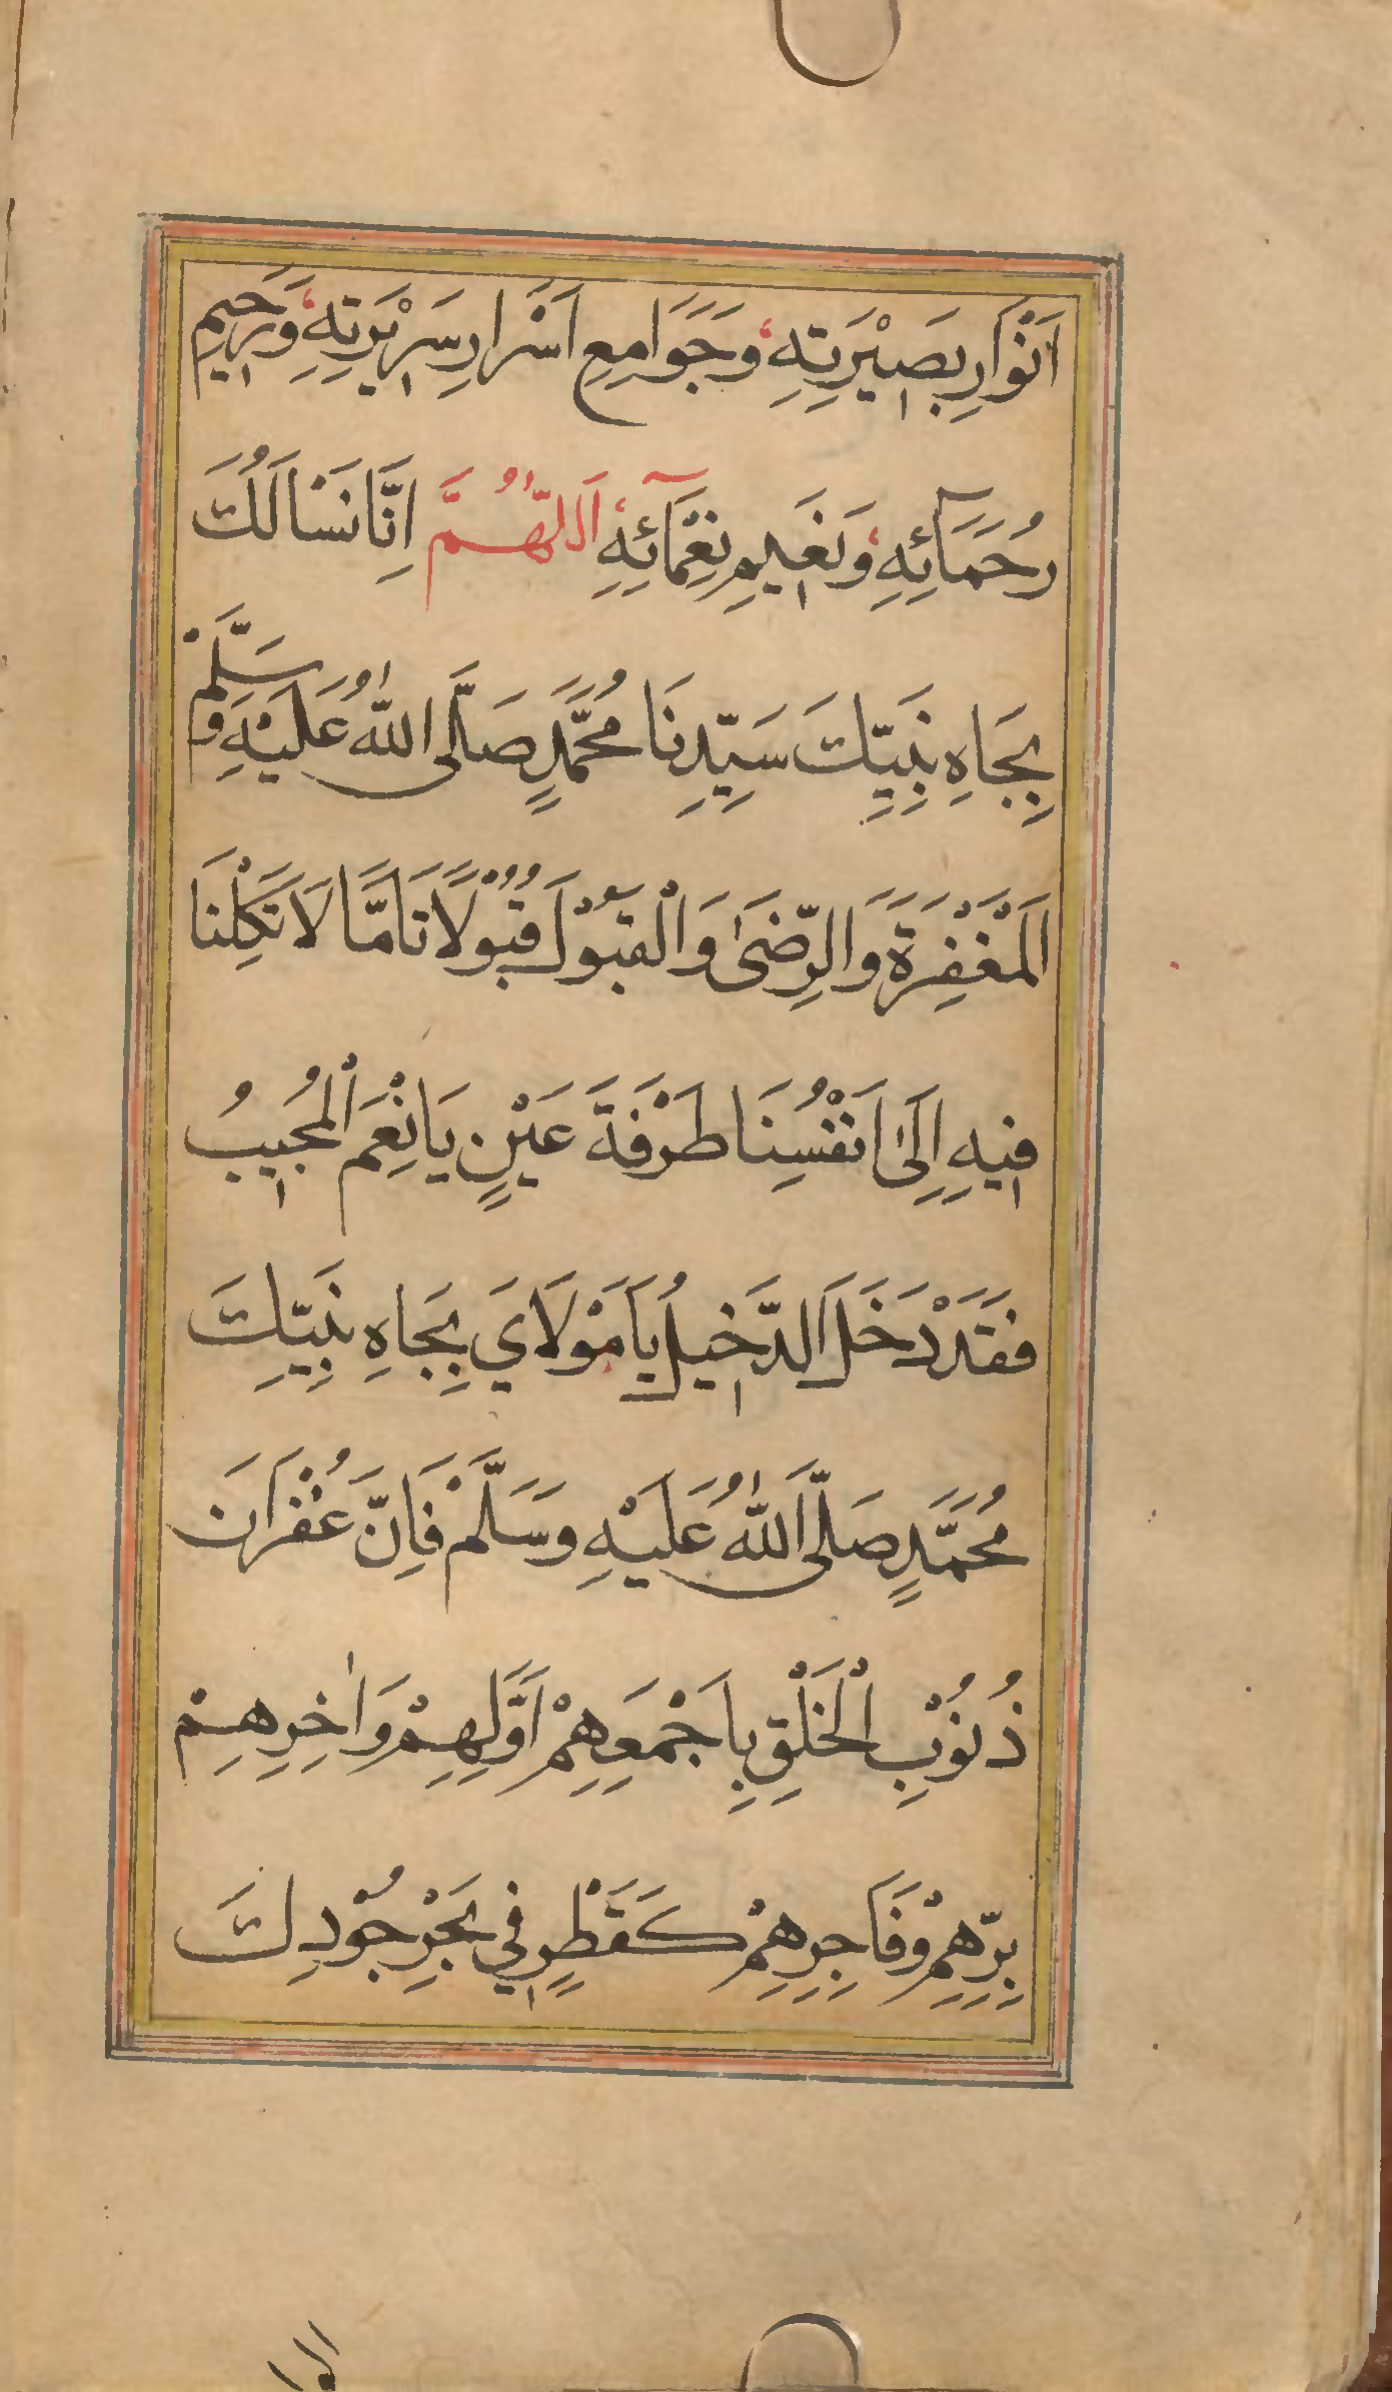 اَنْوَارِ بَصِيْرَتِهِ وَجَوَامِعِ اَسْرَارِ سَرِيْرَتِهِ وَرَحِيمِ
رُحَمَآئِهِ وَنَعِيمِ نِعْمَآئِهِ اَللّٰهُمَّ اِنَّا نَسْاَلُكَ
بِجَاهِ نَبِيِّكَ سَيِّدِنَا مُحَمَّدٍ صَلَّى اللّٰهُ عَلَيْهِ وَسَلَّمْ
اَلْمَغْفِرَةَ وَالرِّضَىٰ وَالْقَبُوْلَ قُبُوْلًا تَامًّا لَا تَكِلْنَا
فِيهِ اِلَىٰ اَنْفُسِنَا طَرْفَةَ عَيْنٍ يَا نِعْمَ الْمُجِيبُ
فَقَدْ دَخَلَ الدَّخِيلُ يَا مَوْلَايَ بِجَاهِ نَبِيِّكَ
مُحَمَّدٍ صَلَّى اللّٰهُ عَلَيْهِ وَسَلَّمْ فَاِنَّ غُفْرَانَ
ذُنُوْبِ الْخَلْقِ بِاَجْمَعِهِمْ اَوَّلِهِمْ وَاٰخِرِهِمْ
بِرِّهِمْ وَفَاجِرِهِمْ كَقَطْرٍ فِي بَحْرِ جُوْدِكَ